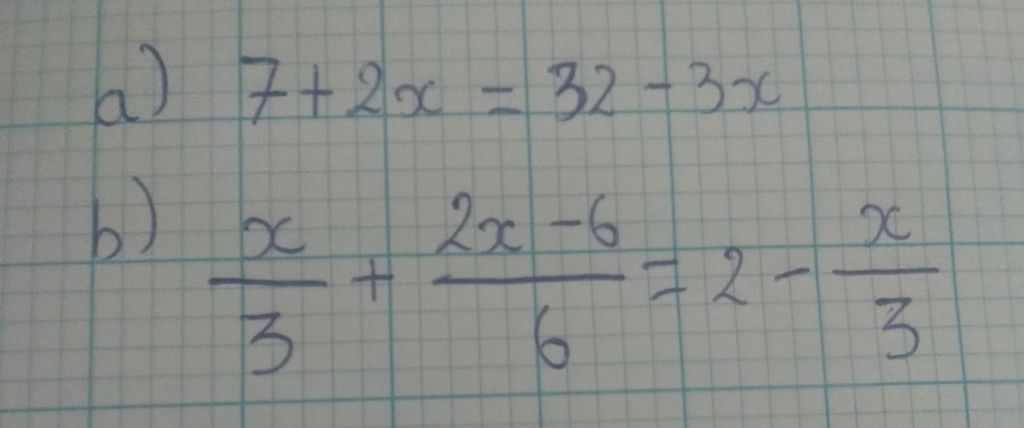 a) 7 + 2x = 32 - 3x
b) x/3 + (2x - 6)/6 = 2 - x/3